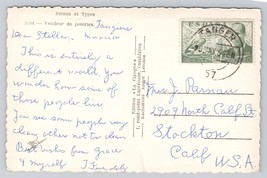 Scènes et Types
Vendeur de poteries
Tangiers
Dear Stella,
This is entirely a
different world. You
wonder how some of
those people live
You see some people very
clean others not too clean
Best wishes from Grace
& myself
ESPAÑA
TANGER
57
J. Parnau
2909 North Calif St
Stockton
Calif U.S.A.